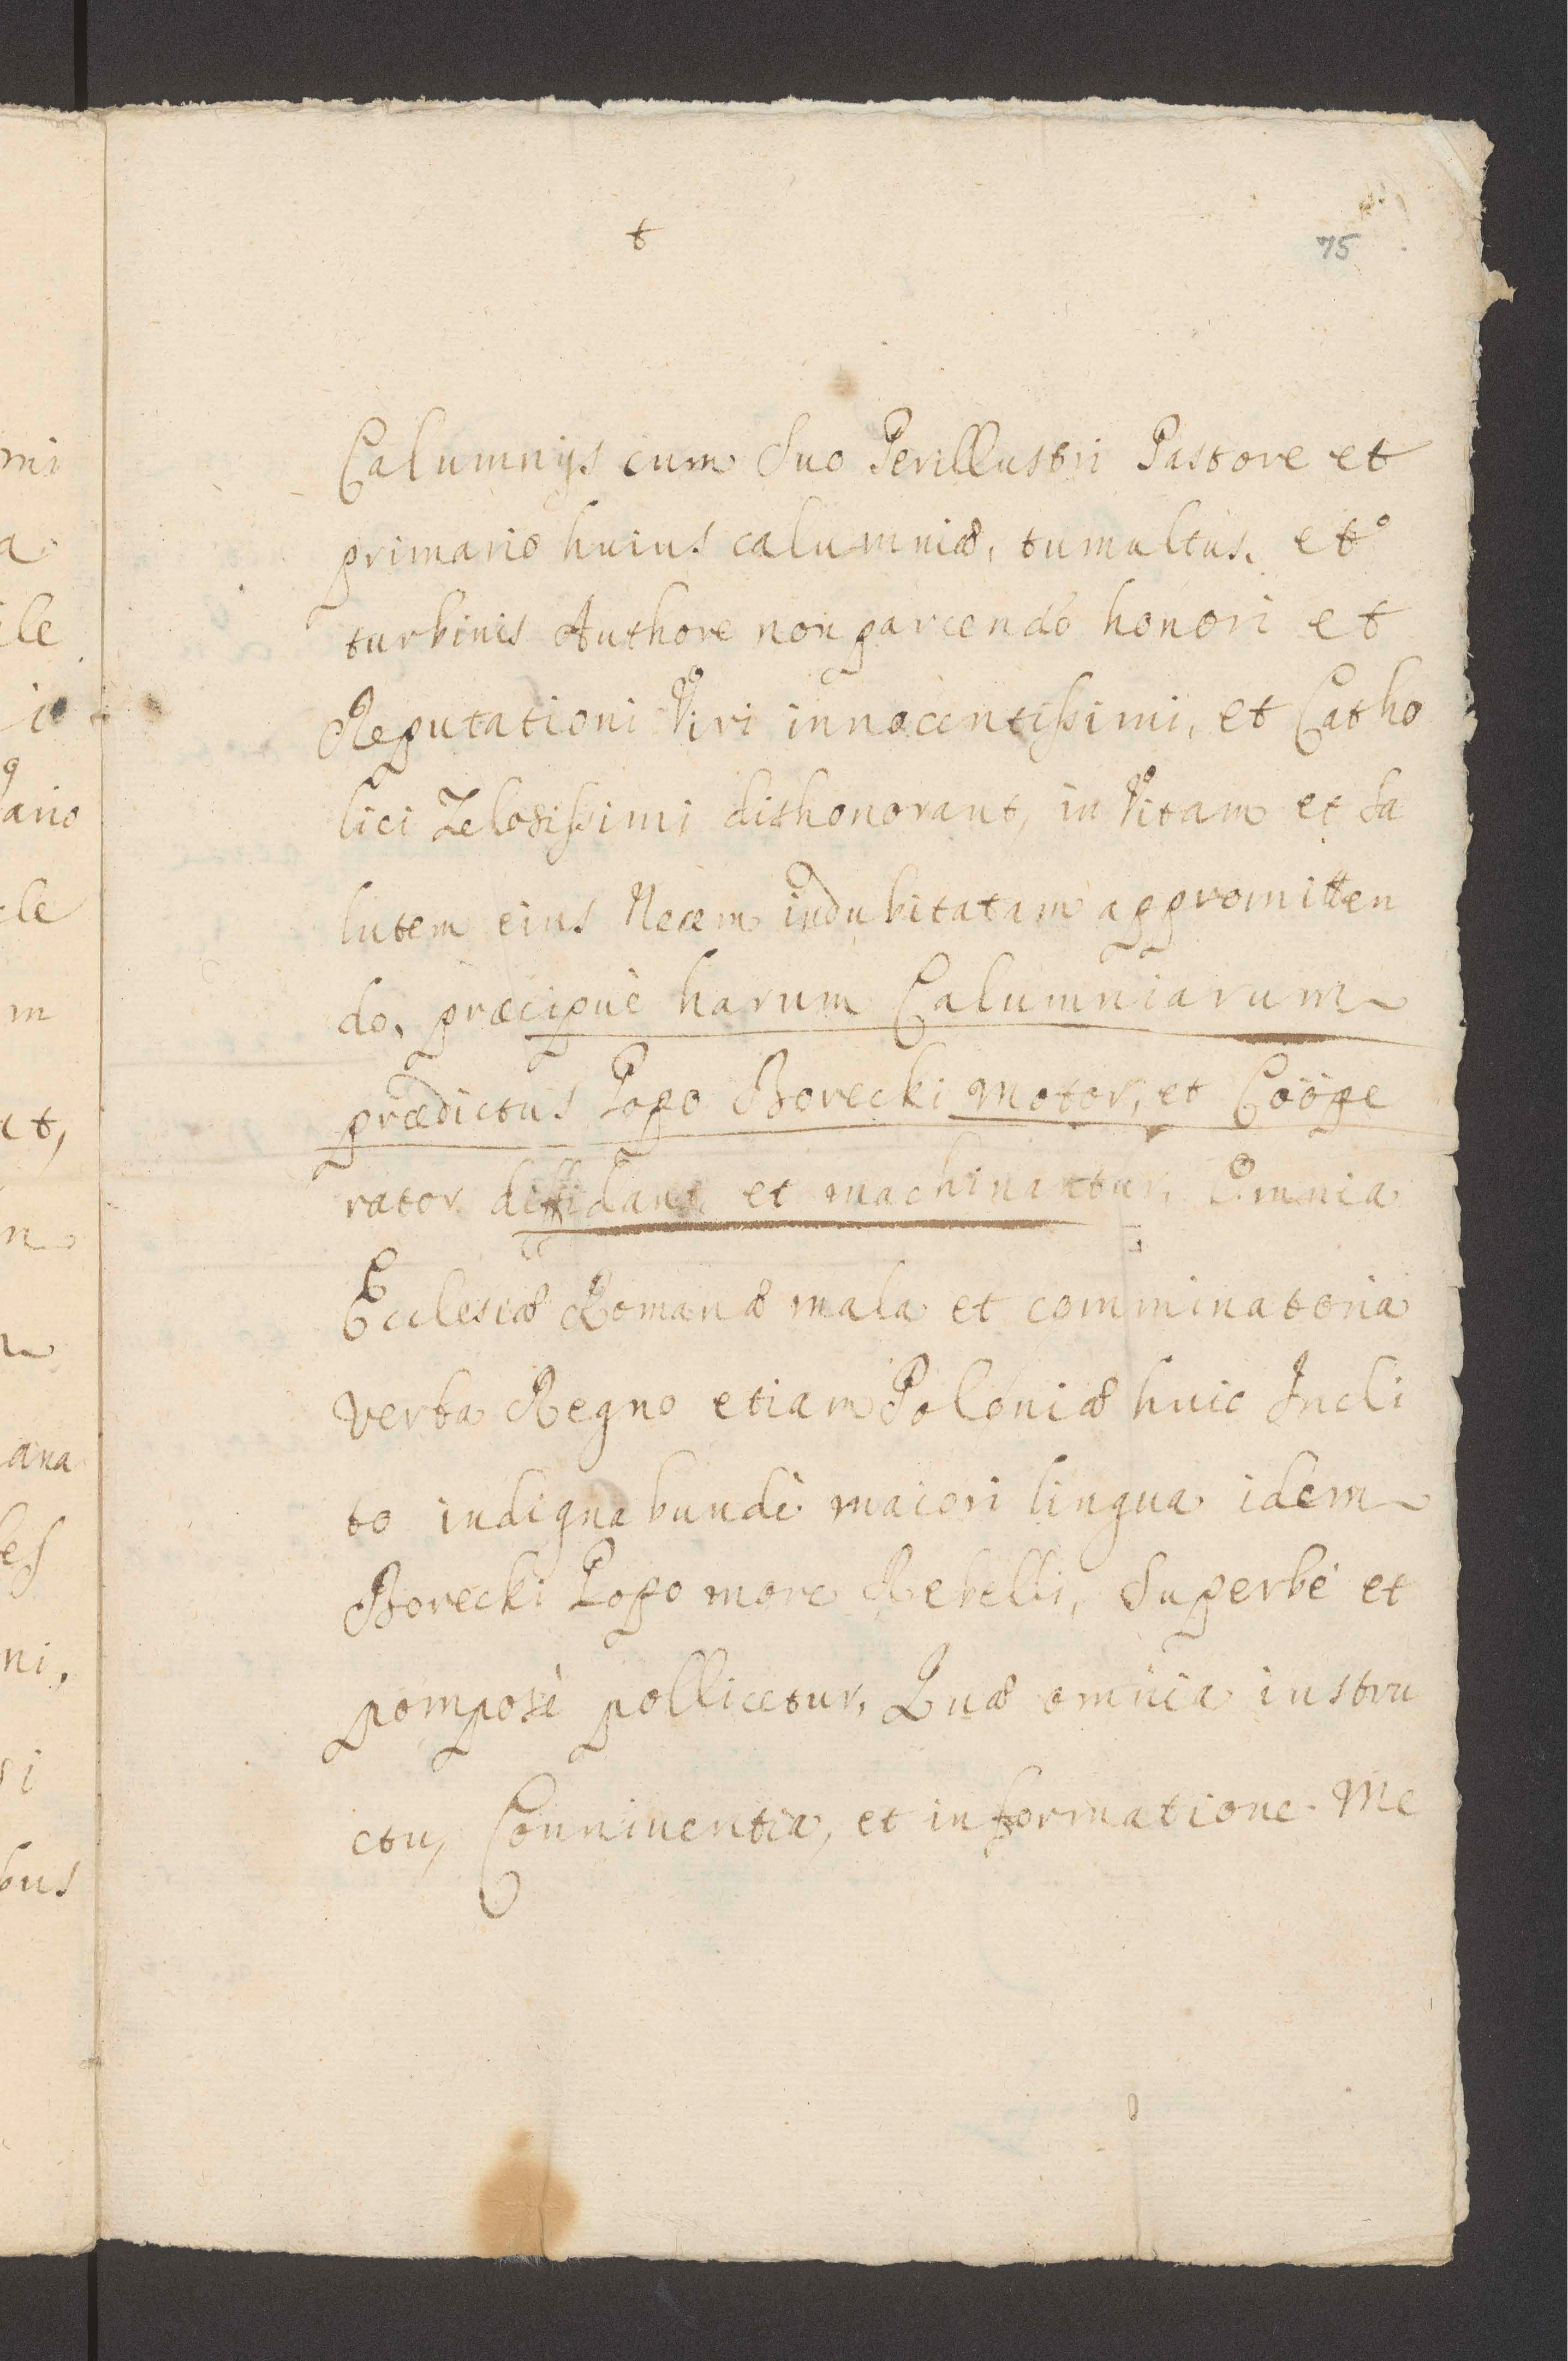 t
75
Calumnijs cum Suo Perillustri Pastore et
primario huius calumniæ, tumultus, et
turbinis Authore non parcendo honori et
Reputationi Viri innocentissimi, et Catho
lici Zelosissimi dishonorant, in Vitam et sa
lutem eius Necem indubitatam appromitten
do, præcipuè harum Calumniarum
prædictus Popo Borecki motor, et Coope
rator diffidant, et machinantur, Omnia
Ecclesiæ Romanæ mala et comminatoria
verba Regno etiam Poloniæ huic Incli
to indignabundè maiori lingua idem
Borecki Popo more Rebelli, Superbè et
pomposè pollicetur, Quæ omnia instru
ctu, Conniventia, et informatione Me